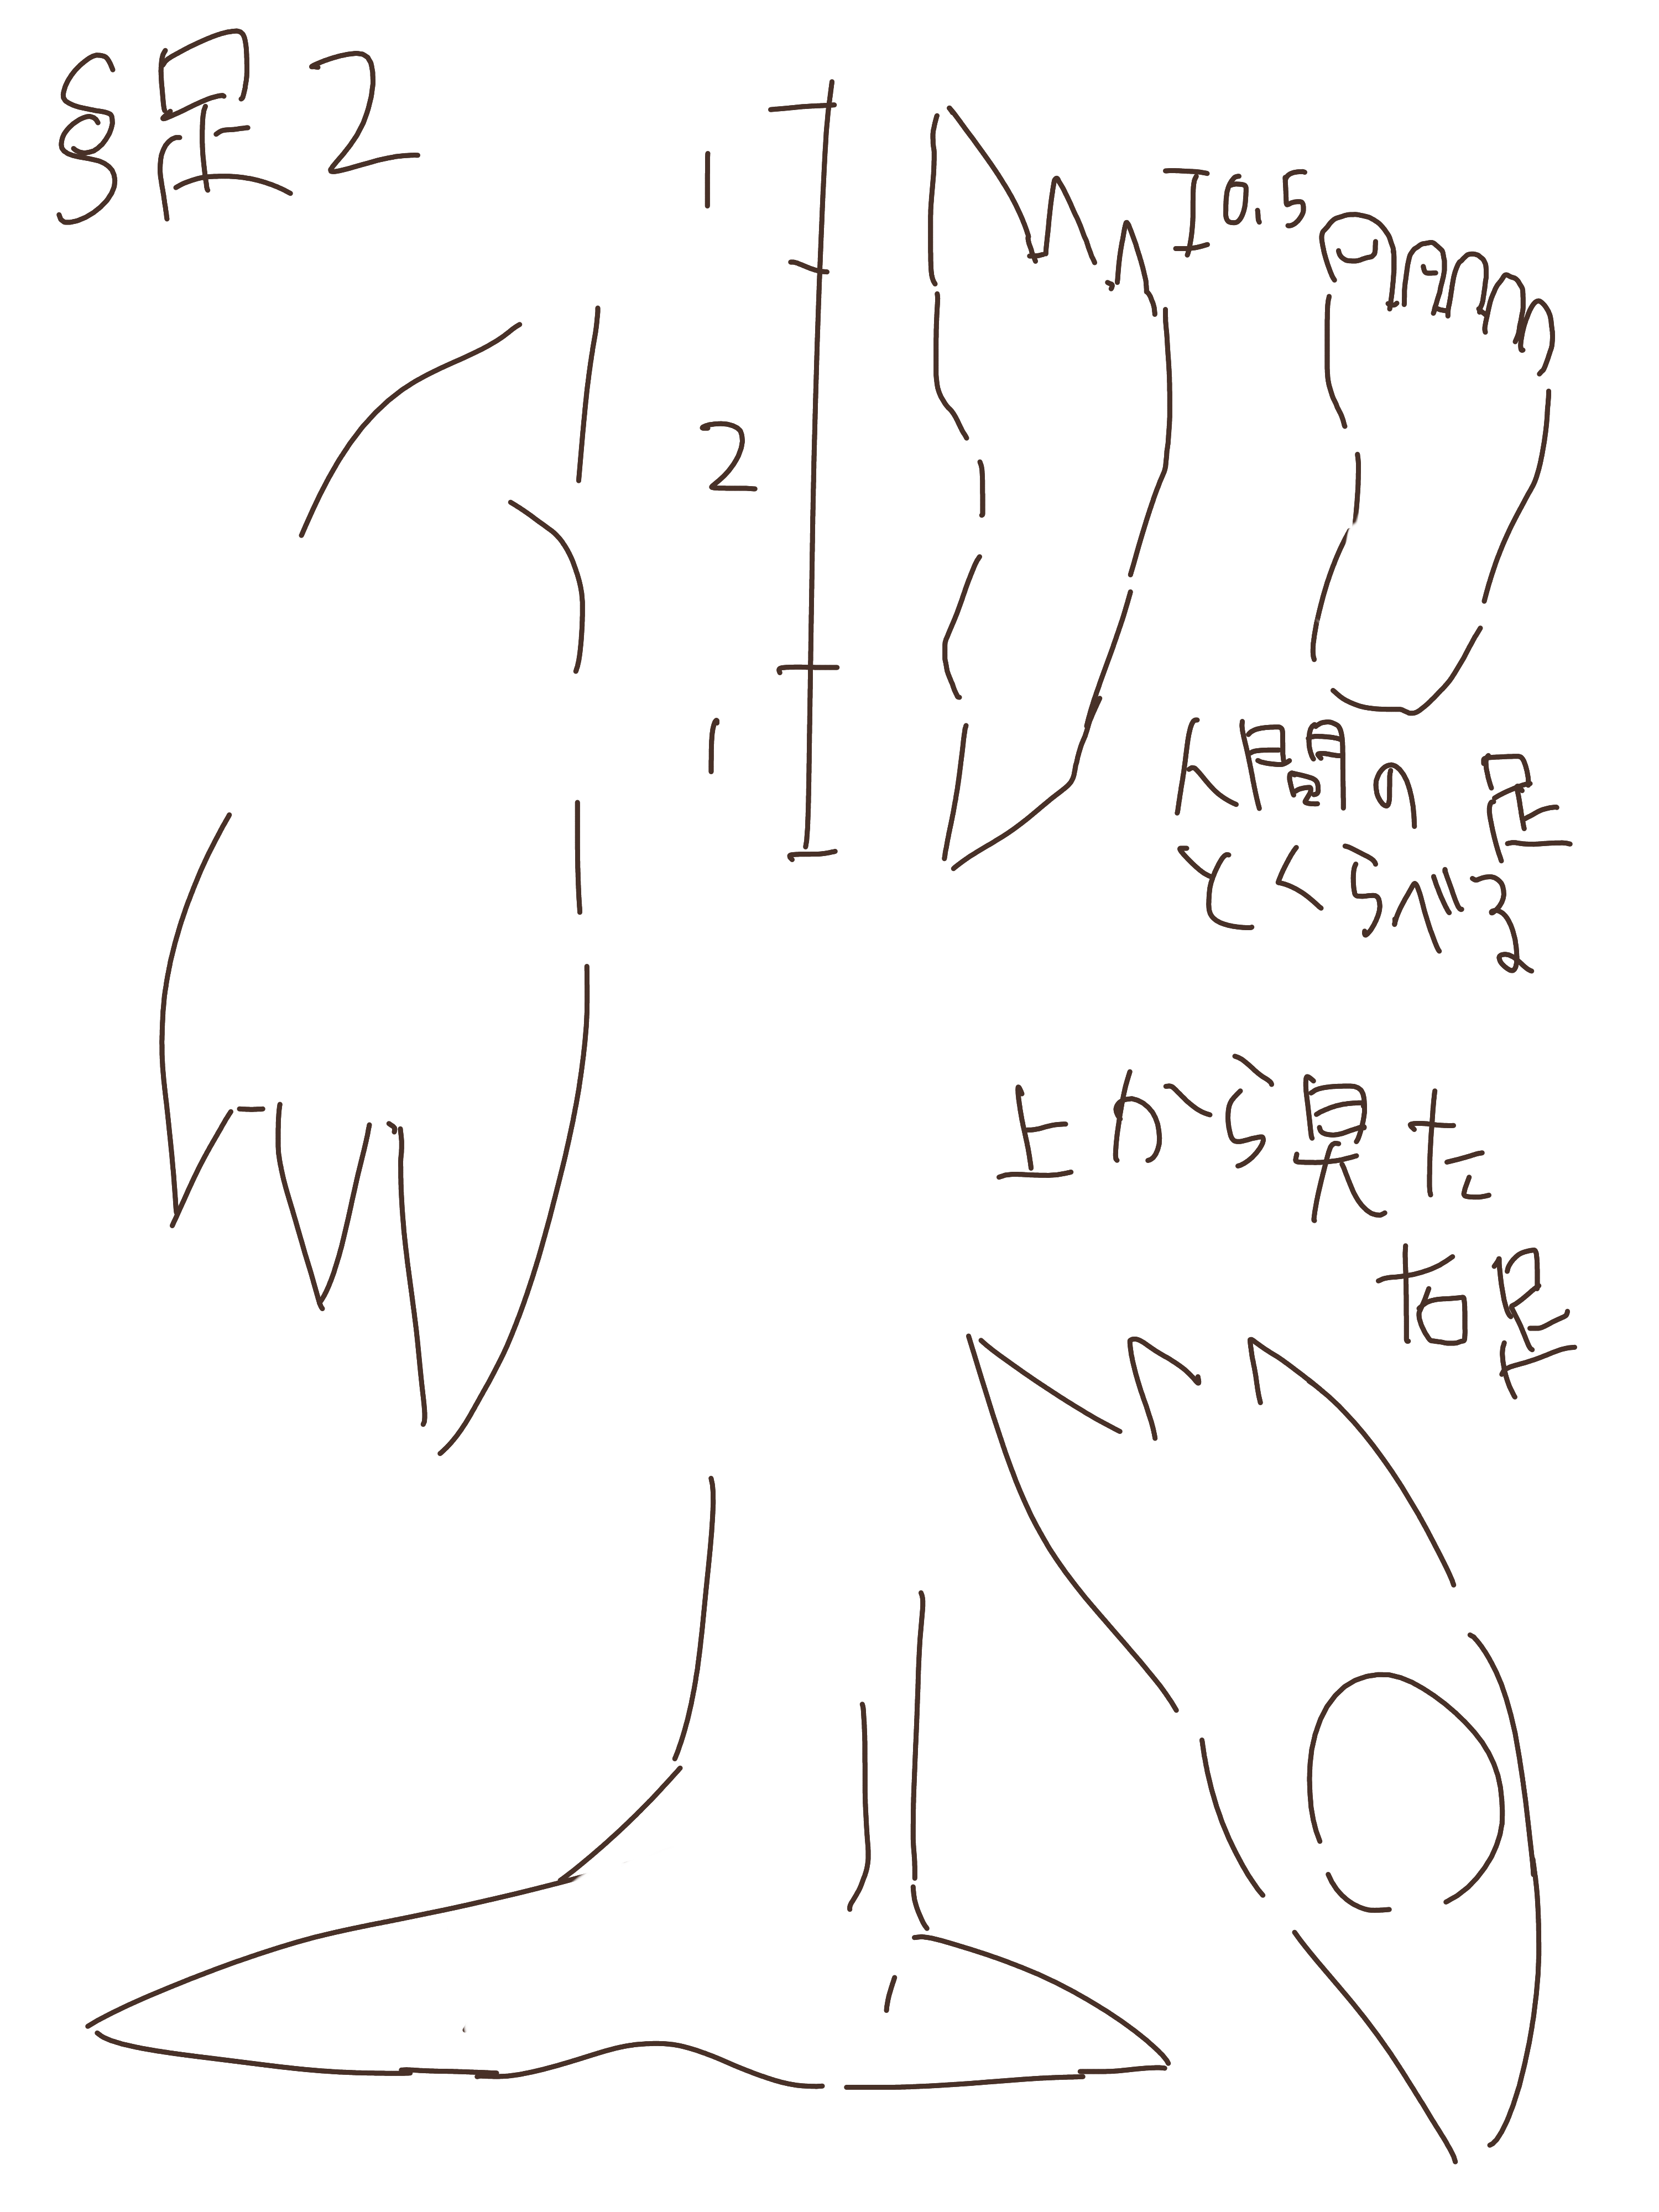 §足2
1
2
1
0.5
人間の足
とくらべる
上から見た
右足